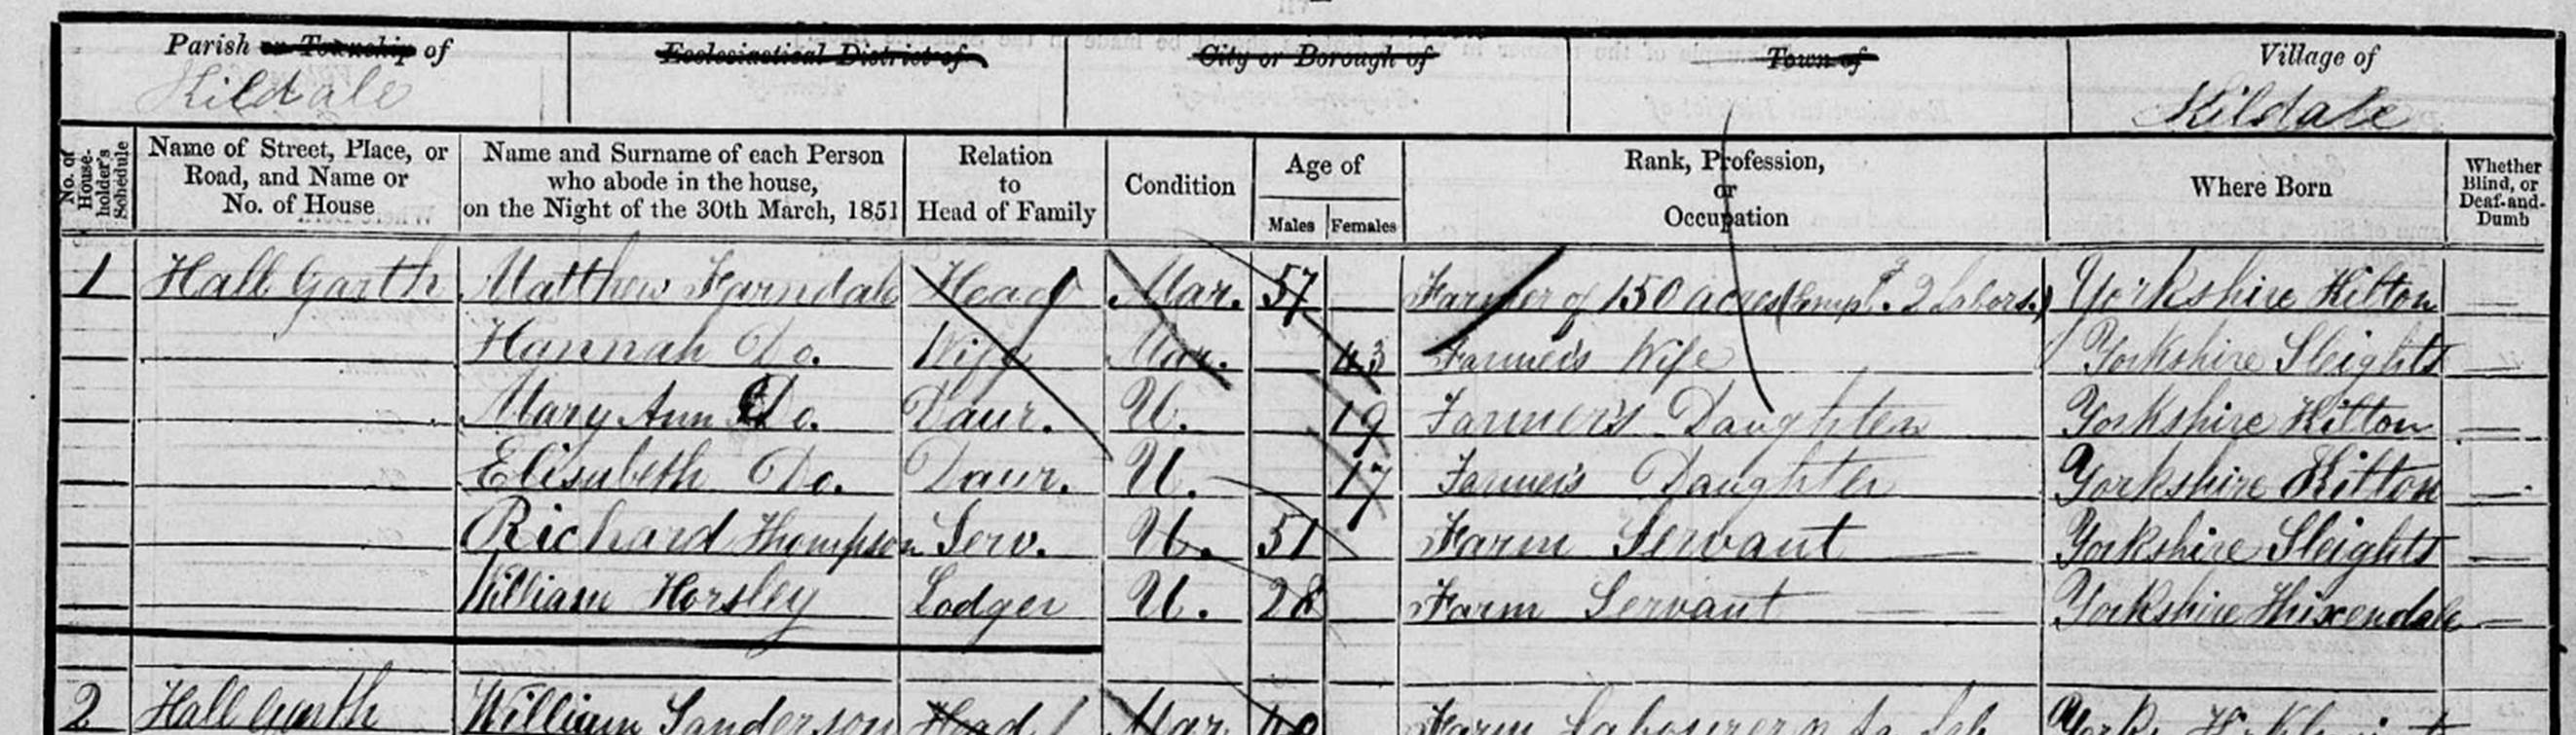 Parish or Township of
Kildale
Ecclesiastical District of
City or Borough of
Town of
Village of
Kildale
No. of House-holder's Schedule
Name of Street, Place, or Road, and Name or No. of House
Name and Surname of each Person who abode in the house, on the Night of the 30th March, 1851
Relation to Head of Family
Condition
Age of
Males Females
Rank, Profession, or Occupation
Where Born
Whether Blind, or Deaf-and-Dumb
1 Hall Garth Matthew Farndale Head Mar. 57 Farmer of 150 acres (empg. 2 labors.) Yorkshire Kilton —
Hannah Do. Wife Mar. 43 Farmer's Wife Yorkshire Sleights —
Mary Ann Do. Daur. U. 19 Farmer's Daughter Yorkshire Kilton —
Elisabeth Do. Daur. U. 17 Farmer's Daughter Yorkshire Kilton —
Richard Thompson Serv. U. 51 Farm Servant — Yorkshire Sleights —
William Horsley Lodger U. 28 Farm Servant — — Yorkshire Thixendale —
2 Hall Garth William Sanderson Head Mar. Farm Labourer